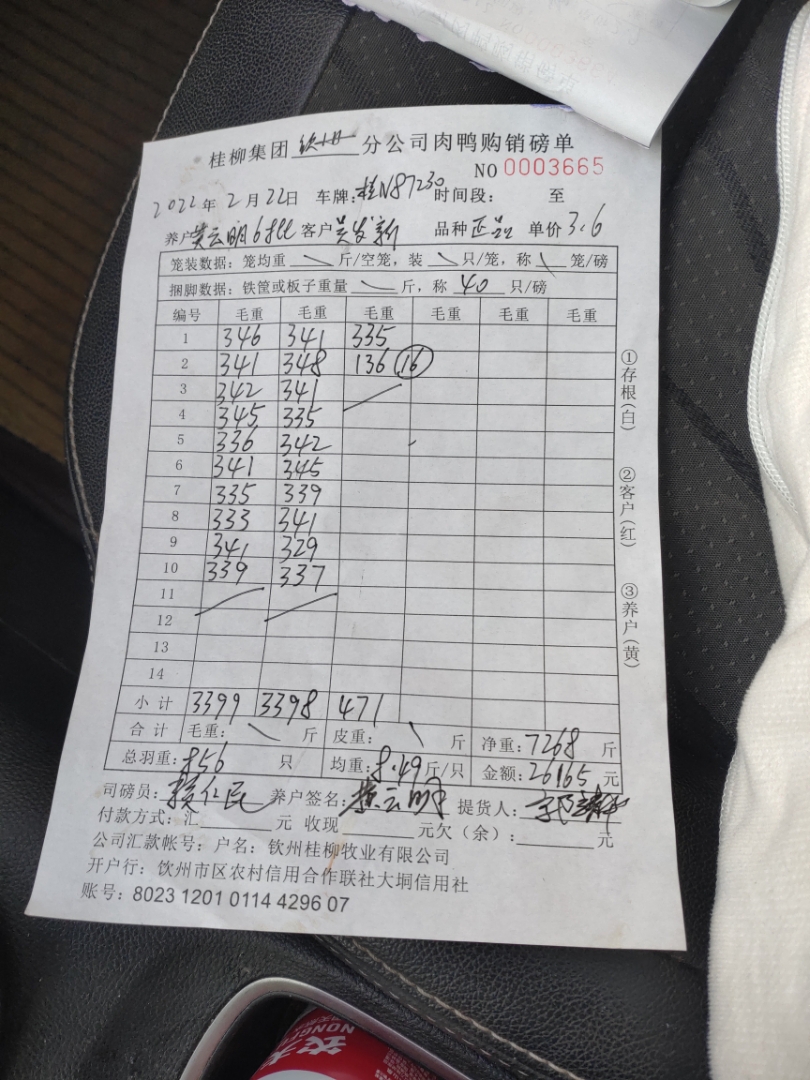 桂柳集团 钦州 分公司肉鸭购销磅单
NO 0003665
2022年2月22日 车牌:桂N87230 时间段: 至
养户 云明6批 客户 吴发新 品种 正品 单价3.6
笼装数据:笼均重 \ 斤/空笼,装 \ 只/笼,称 \ 笼/磅
捆脚数据:铁筐或板子重量 \ 斤,称 40 只/磅
编号 毛重 毛重 毛重 毛重 毛重 毛重
1 346 341 335
2 341 348 136 16
3 342 341
4 345 335
5 336 342
6 341 345
7 335 339
8 333 341
9 341 329
10 339 337
11
12
13
14
小计 3399 3398 471
合计 毛重: \ 斤 皮重: \ 斤 净重:7268 斤
总羽重:856 只 均重:8.49斤/只 金额:26165元
司磅员: 仁民 养户签名: 云明 提货人:
付款方式:汇 元 收现 元欠(余): 元
公司汇款帐号:户名:钦州桂柳牧业有限公司
开户行:钦州市区农村信用合作联社大垌信用社
账号:8023 1201 0114 4296 07
①存根(白)
②客户(红)
③养户(黄)
NONGF